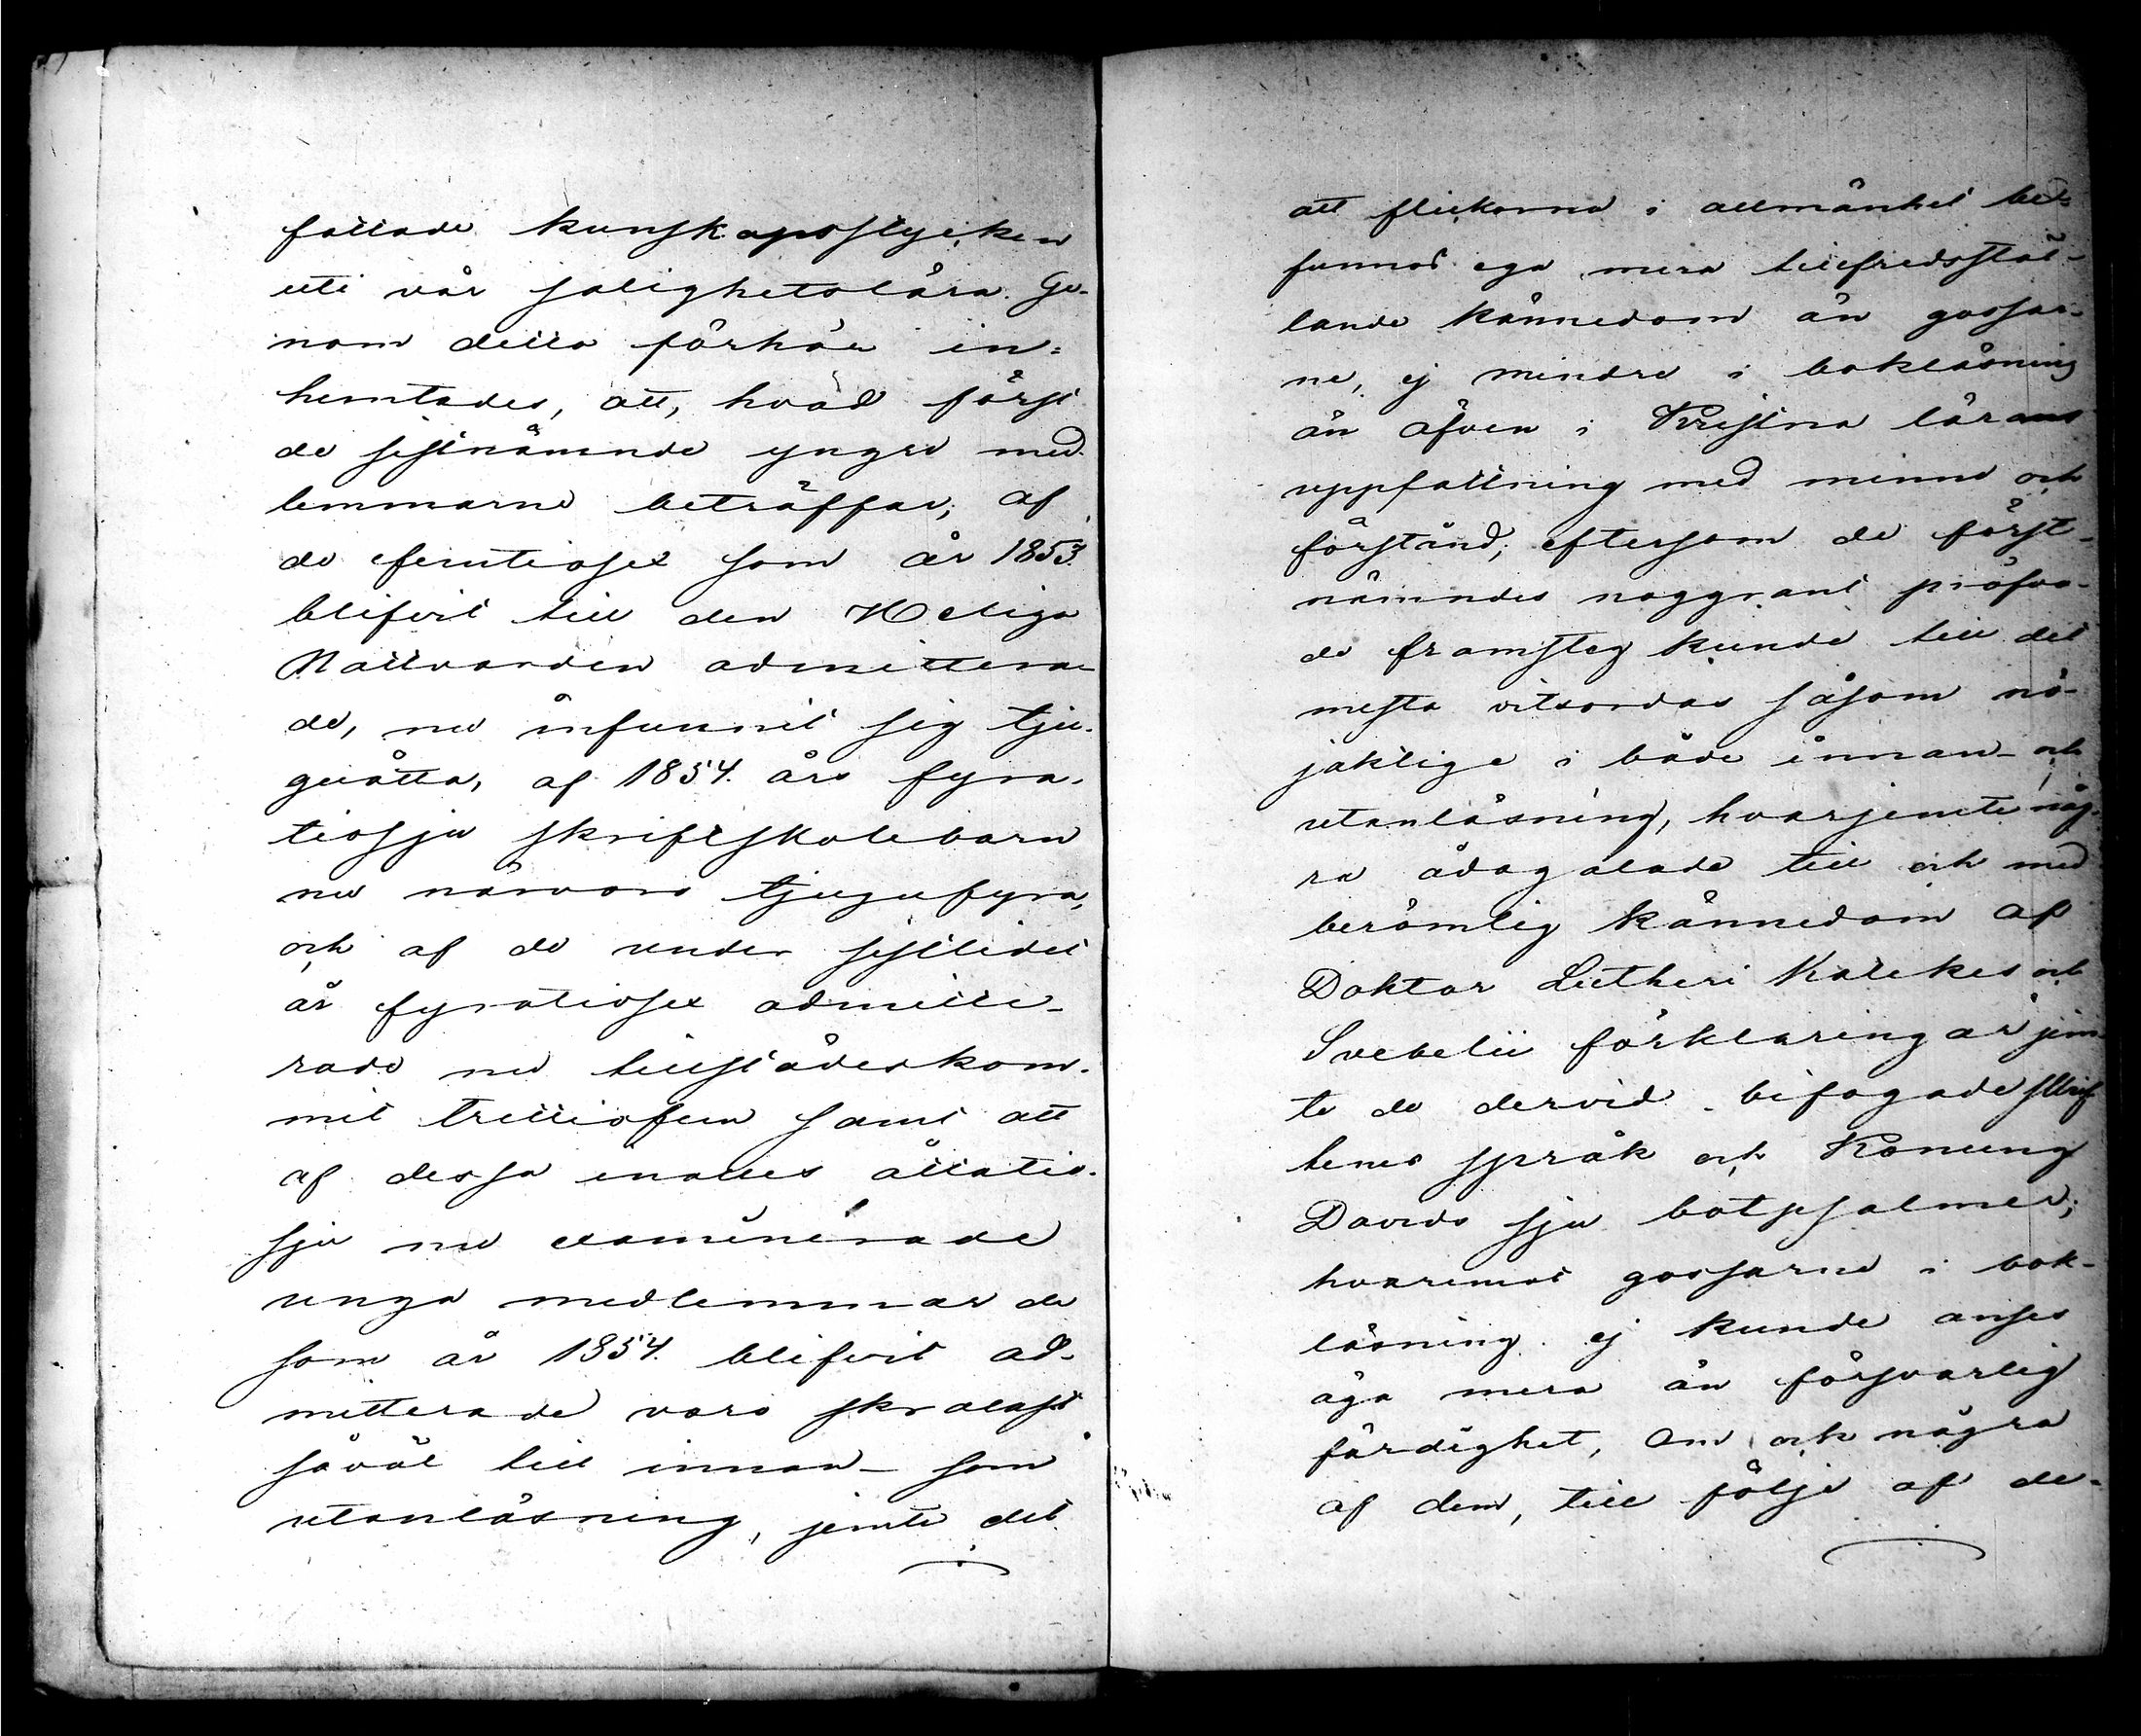 fattade kunskapsstycken
uti vår salighetslära. Ge-
nom detta förhör in=
hemtades, att, hvad först
de sistnämnde yngre med-
lemmarne beträffar, af
de femtiosex som år 1853
blifvit till den Heliga
Nattvarden admittera-
de, nu infunnit sig tju-
guåtta, af 1854. års fyra-
tiosju skriftskolebarn
nu närvaro tjugufyra,
och af de under sistlidet
år fyratiosex admitte-
rade nu tillstädeskom-
mit trettiofem samt att
af dessa inalles åttatio-
sju nu examinerade
unga medlemmar de
som år 1854. blifvit ad-
mitterade voro skralast
såväl till innan- som
utanläsning, jemte det
att flickorna i allmänhet be-
funnos ega mera tillfredsstäl-
lande kännedom än gossar-
ne, ej mindre i bokläsning
än äfven i Kristna lärans
uppfattning med minne och
förstånd; eftersom de först-
nämndes noggrant pröfva-
de framsteg kunde till det
mesta vitsordas såsom nö-
jaktige i både innan- och
utanläsning, hvarjemte någ-
ra ådagalade till och med
berömlig kännedom af
Doktor Lutheri Katekes och
Svebelii förklaringar jem-
te de dervid bifogade skrif
tenes språk och Konung
Davids sju botpsalmer;
hvaremot gossarne i bok-
läsning ej kunde anses
äga mera än försvarlig
färdighet, om och några
af dem, till följe af de-